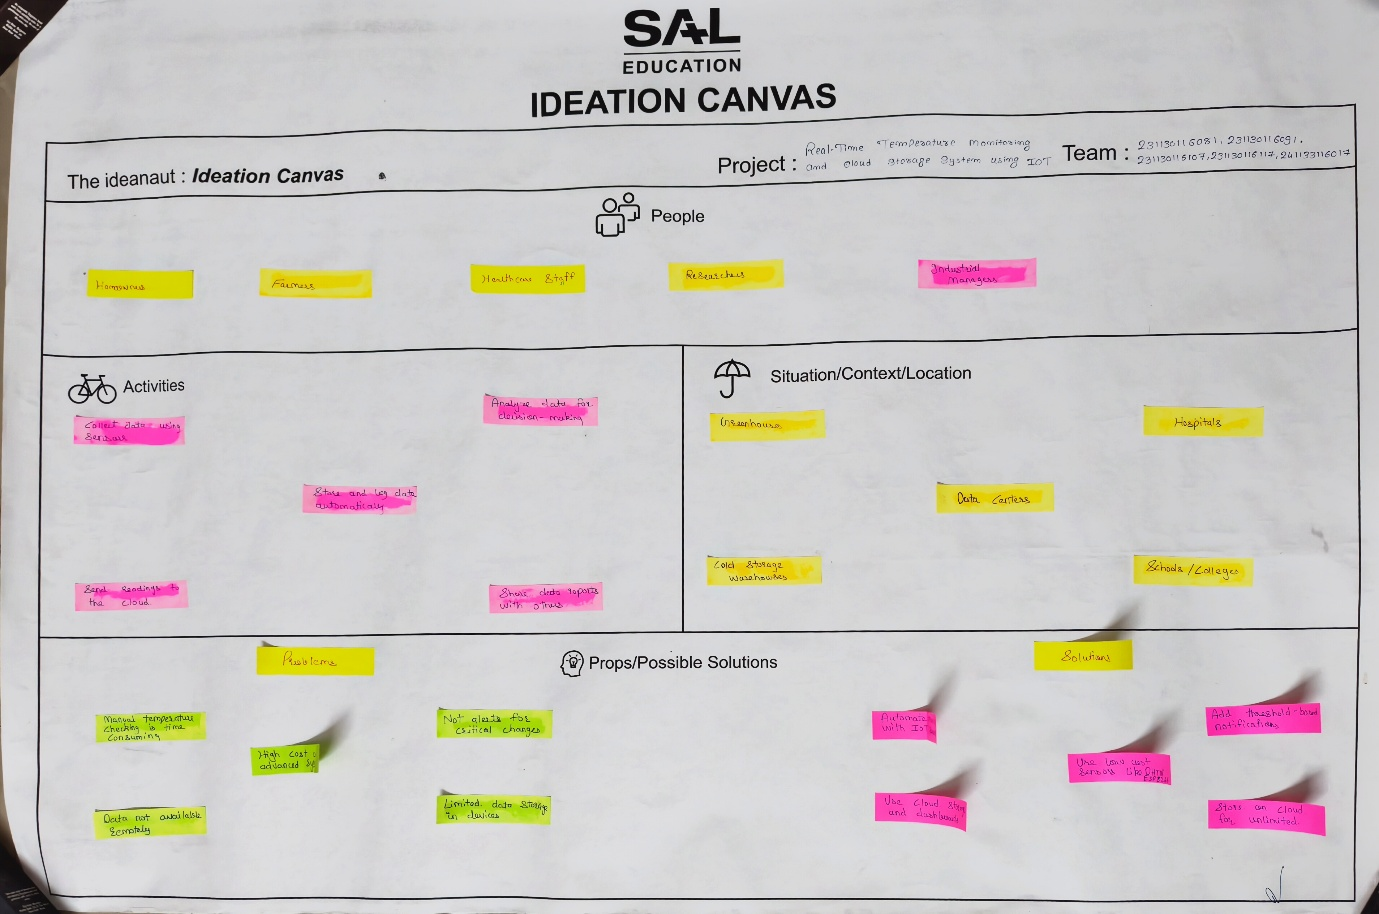 SAL
EDUCATION
IDEATION CANVAS
The ideanaut : Ideation Canvas
Project : Real-Time Temperature Monitoring
and cloud storage system using IOT
Team : 231130116081, 231130116091,
231130116107, 231130116117, 241133116017
People
Farmers
Healthcare Staff
Researchers
Industrial
Managers
Activities
Collect data using
Sensors
Analyze data for
decision-making
Store and log data
automatically
Send readings to
the cloud.
Share data reports
with others
Situation/Context/Location
Greenhouse
Hospitals
Data Centers
Cold Storage
Warehouses
Schools / Colleges
Props/Possible Solutions
Problems
Manual temperature
checking is time
consuming
Not alerts for
critical changes
High cost
advanced
Data not available
remotely
Limited data storage
in devices
Solutions
Automate
with IoT
Add threshold-based
notifications
Use low cost
sensors like
Use Cloud
and dashboards
Store on cloud
for unlimited